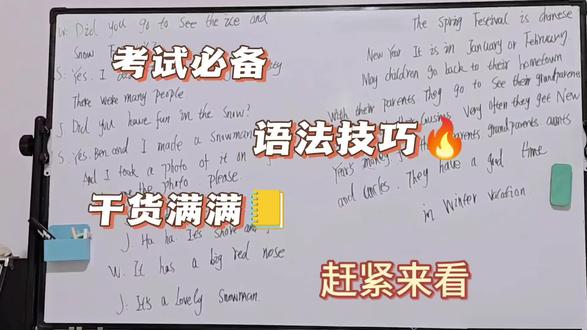 W: Did you go to see the ice and
Snow
S: Yes. I
There were many people
J Did you have fun in the snow?
S Yes. Ben and I made a Snowman
And I took a photo of it on
the photo please
J: Ha ha. It's
W. It has a big red nose
J: It's a Lovely Snowman.
The Spring Festival is chinese
New Year It is in January or February
May children go back to their hometown
With their parents They go to See their grandparents
Very often they get New
Year's money parents grandparents aunts
and uncles. They have a good time
in winter vacation
考试必备
语法技巧🔥
干货满满📒
赶紧来看